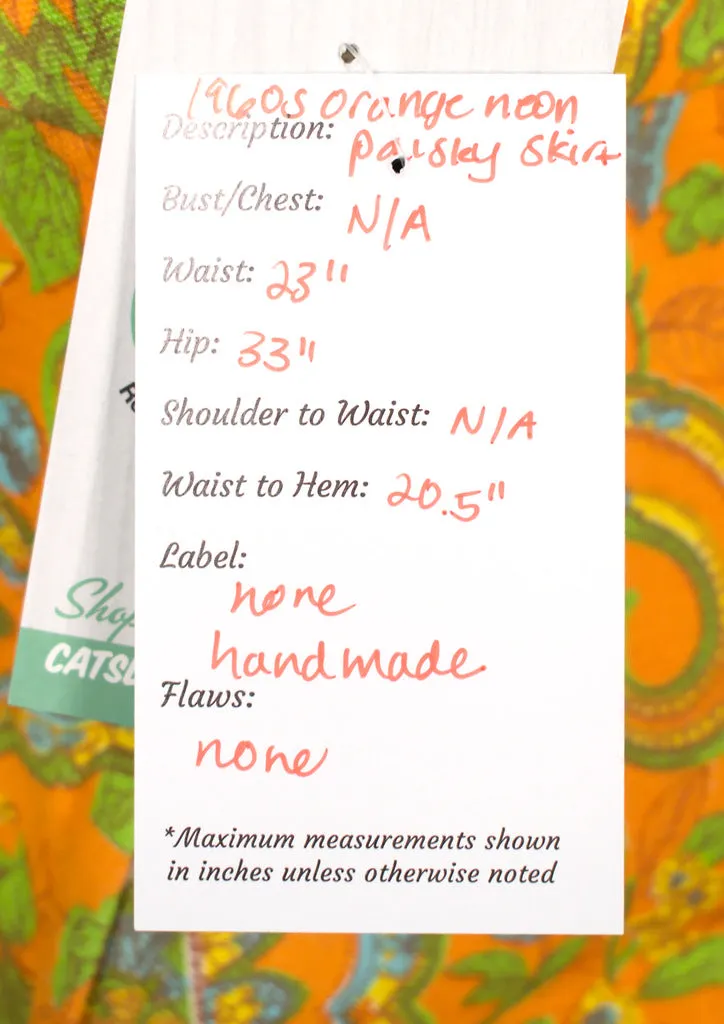 1960s orange neon
Description: paisley skirt
Bust/Chest: N/A
Waist: 23"
Hip: 33"
Shoulder to Waist: N/A
Waist to Hem: 20.5"
Label:
none
handmade
Flaws:
none
*Maximum measurements shown
in inches unless otherwise noted
Shop